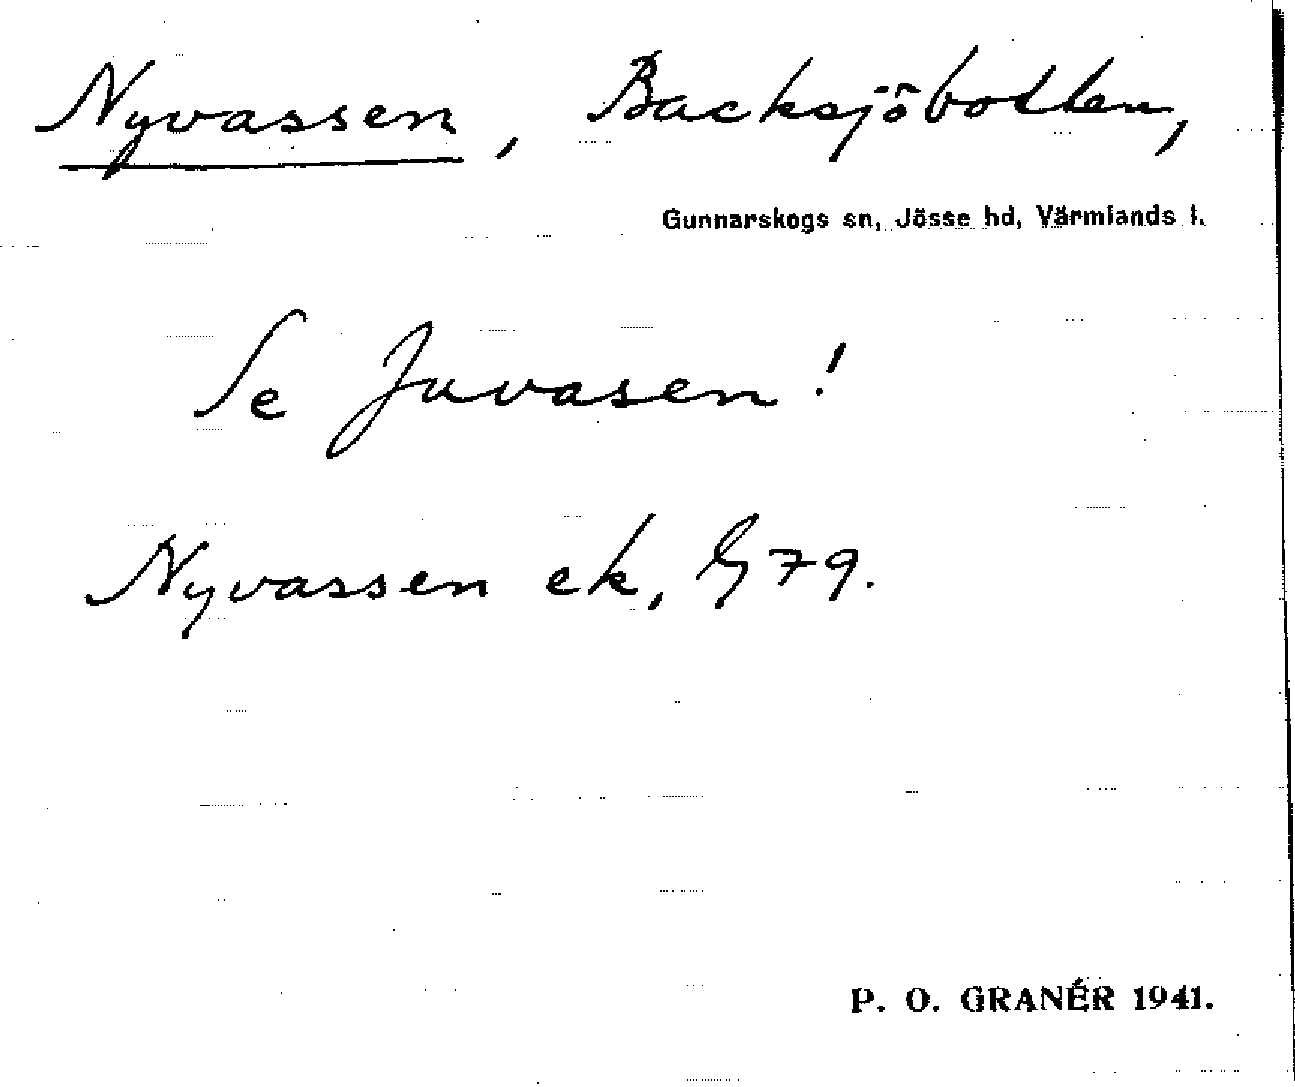 Nyvassen, Backsjöbotten,
Gunnarskogs sn, Jösse hd, Värmlands l.
Se Juvasen!
Nyvassen ek, G 79.
P. O. GRANÉR 1941.